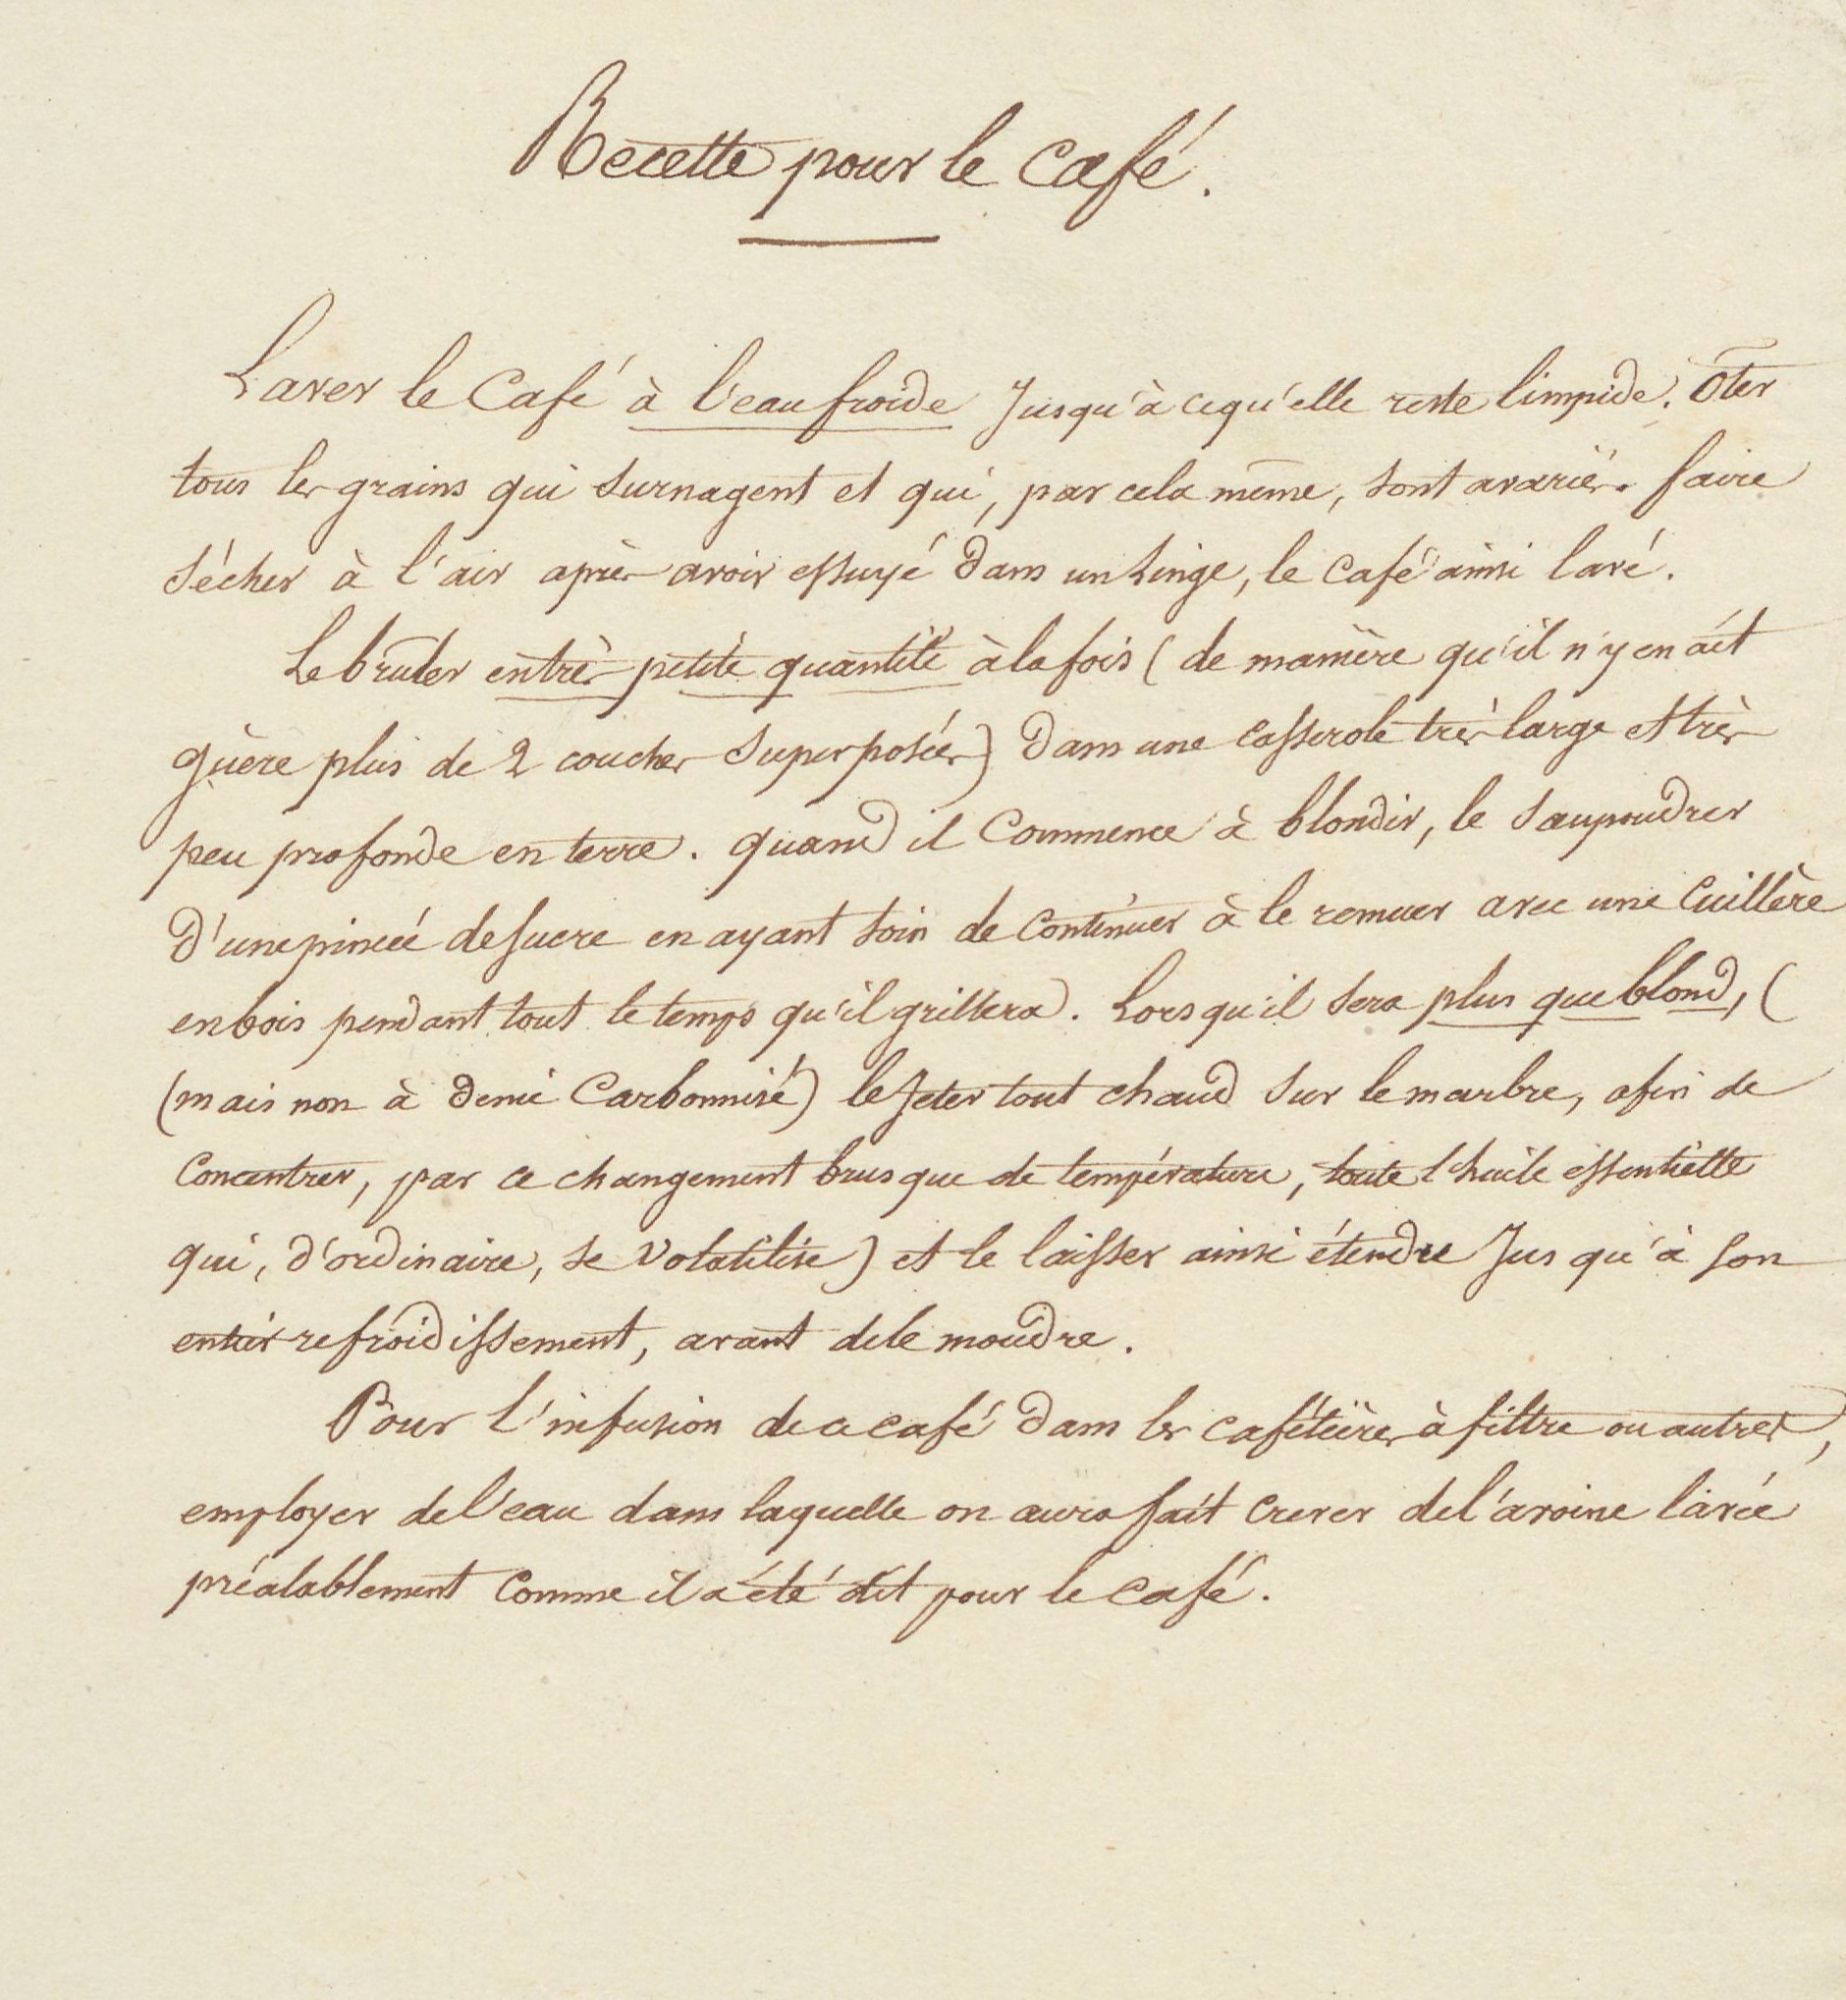 Recette pour le Café.
Laver le Café à l'eau froide Jusqu'à ce qu'elle reste limpide. Ôter
tous les grains qui surnagent et qui, par cela même, sont avariés. faire
sécher à l'air après avoir essuyé dans un Linge, le Café ainsi lavé.
Le bruler en très petite quantité à la fois (de manière qu'il n'y en ait
guère plus de 2 couches superposées) dans une casserole très large et très
peu profonde en terre. quand il Commence à blondir, le saupoudrer
d'une pincée de sucre en ayant soin de Continuer à le remuer avec une Cuillère
en bois pendant tout le temps qu'il grillera. Lorsqu'il sera plus que blond, (
(mais non à demi Carbonnisé) le Jeter tout chaud sur le marbre, afin de
Concentrer, par ce changement brusque de température, toute l'huile essentielle
qui, d'ordinaire, se volatilise) et le laisser ainsi étendre Jusqu'à son
entier refroidissement, avant de le moudre.
Pour l'infusion de ce café dans les cafétières à filtre ou autres,
employer de l'eau dans laquelle on aura fait Crever de l'avoine lavée
préalablement Comme il a été dit pour le Café.